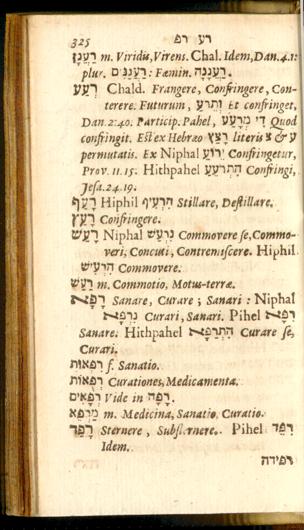 325 רע רפ
רַעֲנָן m. Viridis, Virens. Chal. Idem, Dan. 4.1:
plur. רַעֲנַנִּים: Fæmin. רַעֲנַנָּה.
רְעַע Chald. Frangere, Confringere, Con-
terere. Futurum, וְתֵרֹעַ Et confringet,
Dan. 2:40. Particip. Pahel, דִּי מְרָעַע Quod
confringit. Est ex Hebræo רָצַץ literis צ & ע
permutatis. Ex Niphal יֵרוֹעַ Confringetur,
Prov. 11.15. Hithpahel הִתְרֹעֵעַ Confringi,
Jesa. 24.19.
רָעַף Hiphil הִרְעִיף Stillare, Destillare.
רָעַץ Confringere.
רָעַשׁ Niphal נִרְעַשׁ Commovere se, Commo-
veri, Concuti, Contremiscere. Hiphil
הִרְעִישׁ Commovere.
רַעַשׁ m. Commotio, Motus-terræ.
רָפָא Sanare, Curare; Sanari: Niphal
נִרְפָּא Curari, Sanari. Pihel רִפֵּא
Sanare. Hithpahel הִתְרַפֵּא Curare se,
Curari.
רִפְאוּת f. Sanatio.
רְפֻאוֹת Curationes, Medicamenta.
רְפָאִים Vide in רָפָה.
מַרְפֵּא m. Medicina, Sanatio, Curatio.
רָפַד Sternere, Substernere. Pihel רִפֵּד
Idem.
רפידה